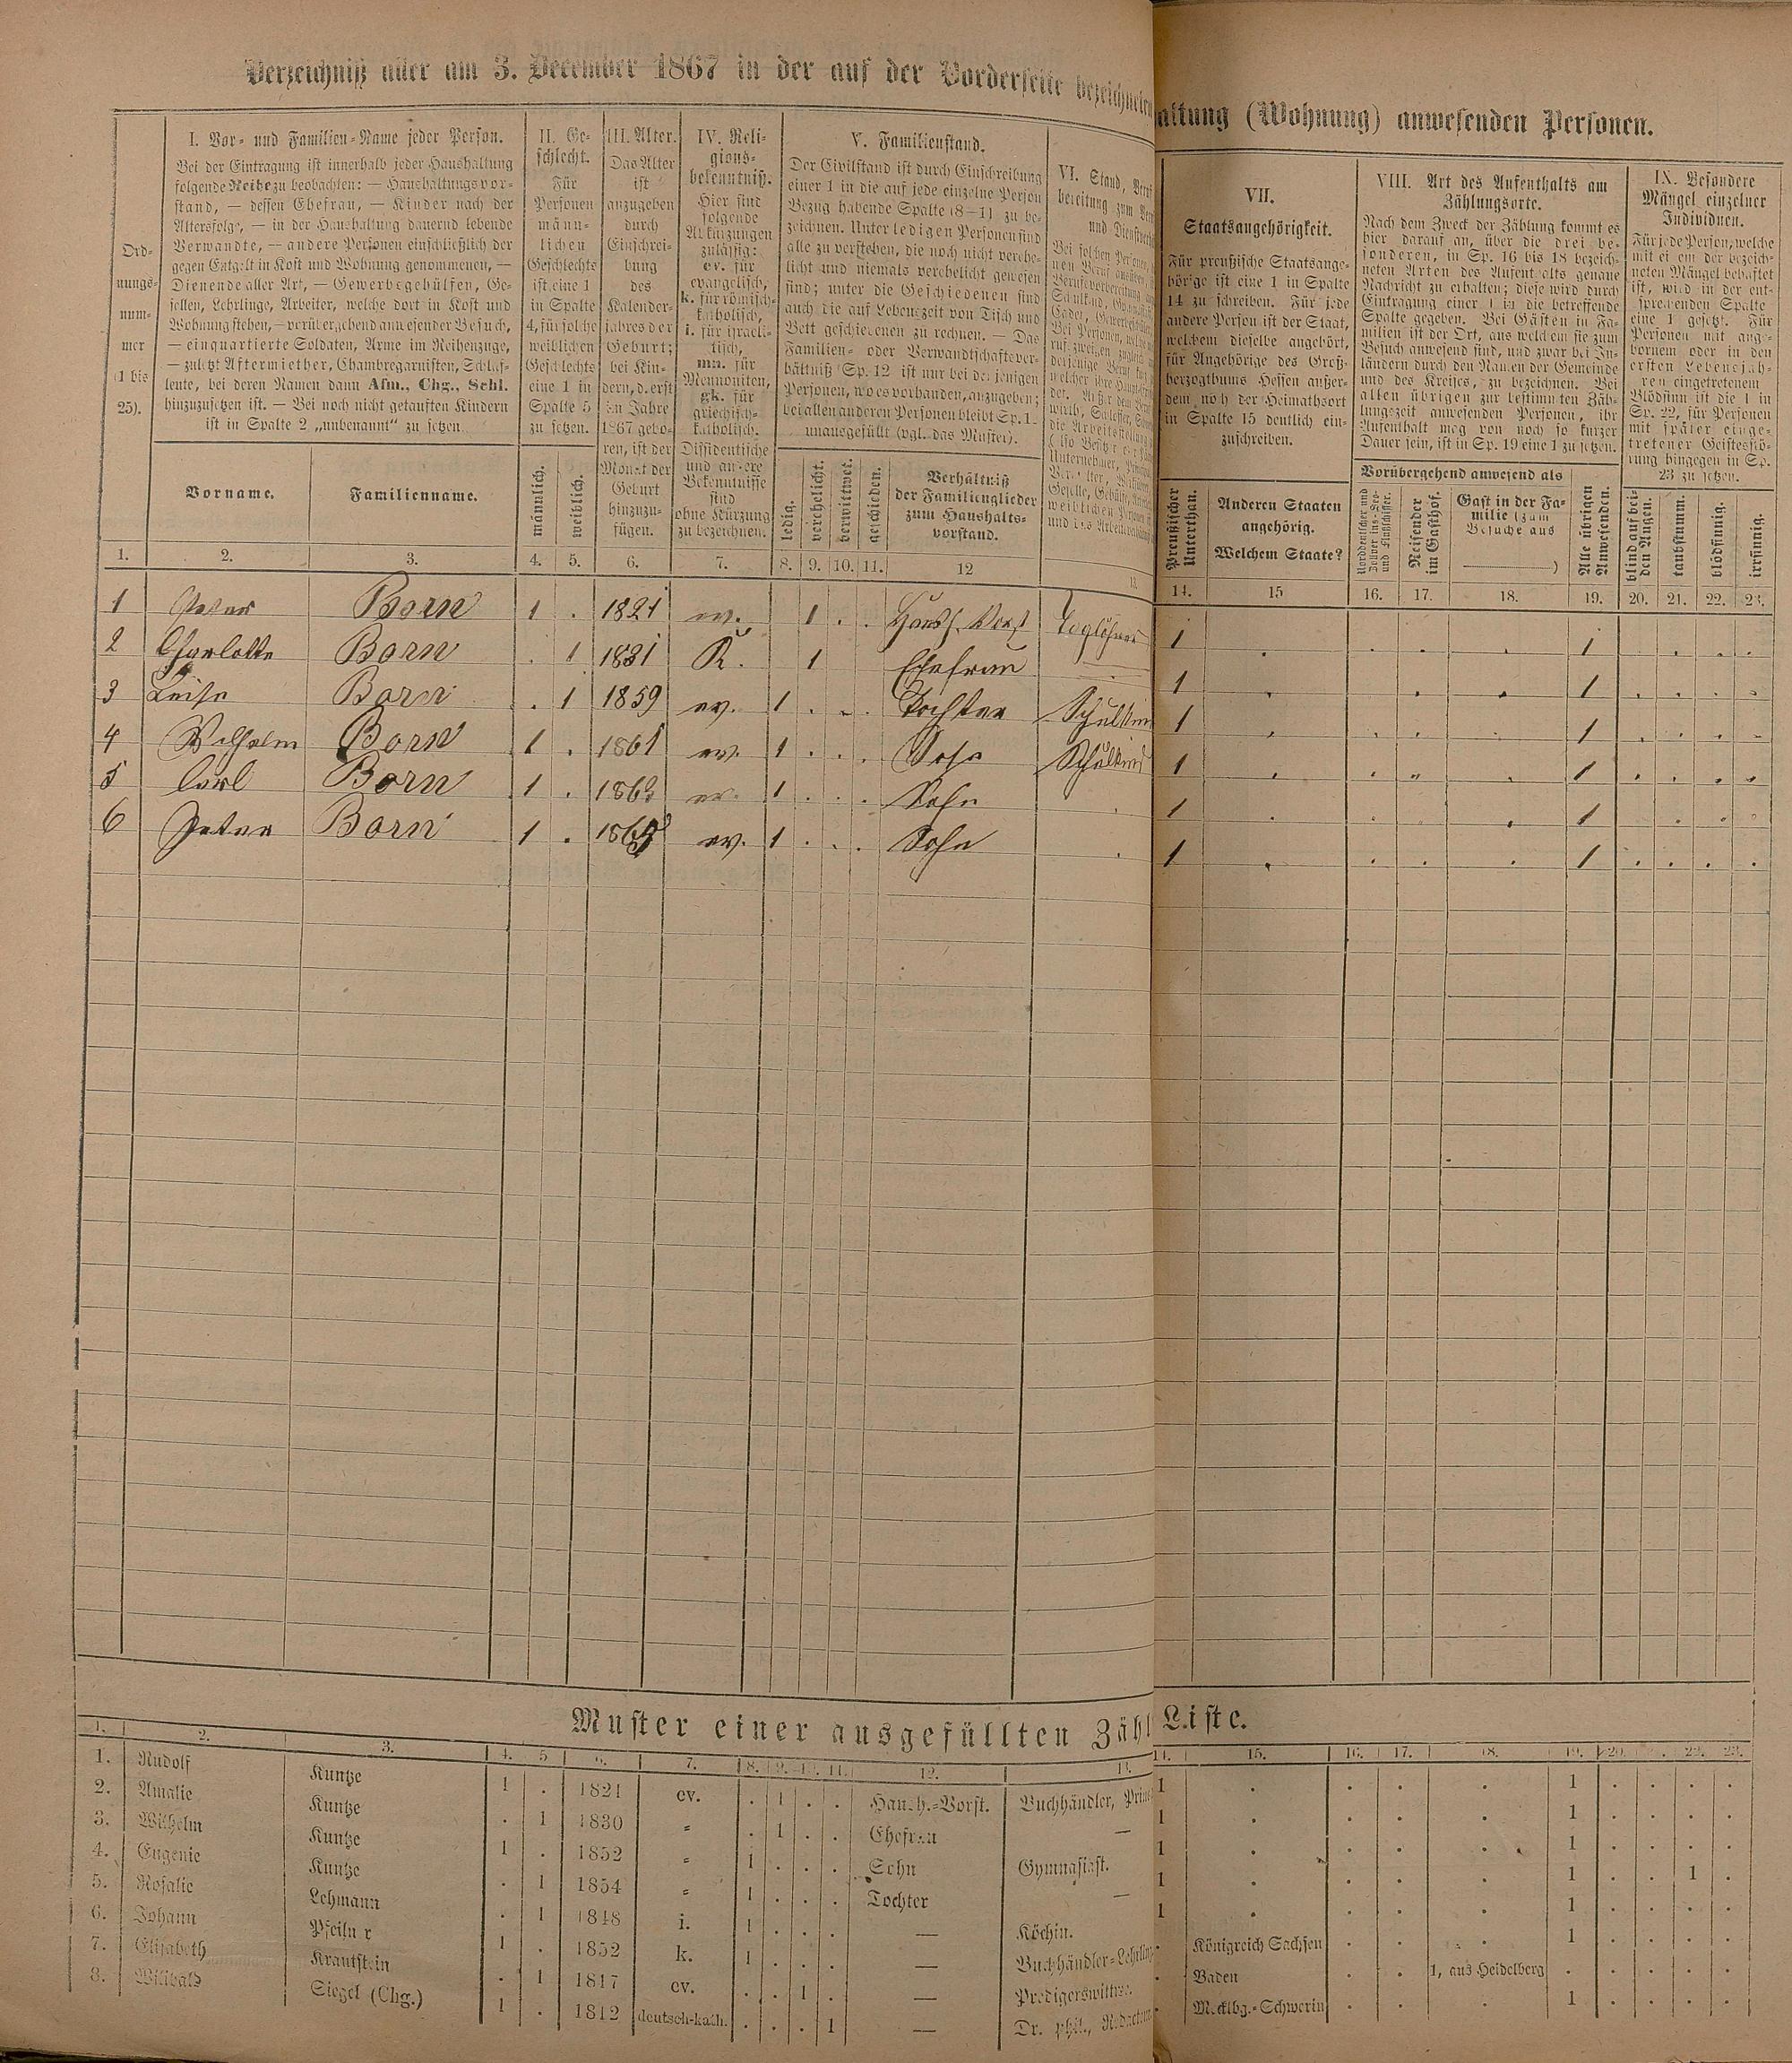 Verzeichniß aller am 3. December 1867 in der auf der Vorderseite bezeichneten
altung (Wohnung) anwesenden Personen.
Ord-
nungs-
num-
mer
(1 bis
25).
I. Vor- und Familien-Name jeder Person.
Bei der Eintragung ist innerhalb jeder Haushaltung
folgende Reihe zu beobachten: — Haushaltungsvor-
stand, — dessen Ehefrau, — Kinder nach der
Altersfolge, — in der Haushaltung dauernd lebende
Verwandte, — andere Personen einschließlich der
gegen Entgelt in Kost und Wohnung genommenen, —
Dienende aller Art, — Gewerbegehülfen, Ge-
sellen, Lehrlinge, Arbeiter, welche dort in Kost und
Wohnung stehen, — vorübergehend anwesender Besuch,
— einquartierte Soldaten, Arme im Reihenzuge,
— zuletzt Aftermiether, Chambregarnisten, Schlaf-
leute, bei deren Namen dann Afm., Chg., Schl.
hinzuzusetzen ist. — Bei noch nicht getauften Kindern
ist in Spalte 2 „unbenannt“ zu setzen.
Vorname.
Familienname.
II. Ge-
schlecht.
Für
Personen
männ-
lichen
Geschlechts
ist eine 1
in Spalte
4, für solche
weiblichen
Geschlechts
eine 1 in
Spalte 5
zu setzen.
männlich.
weiblich.
III. Alter.
Das Alter
ist
anzugeben
durch
Einschrei-
bung
des
Kalender-
jahres der
Geburt;
bei Kin-
dern, d. erst
im Jahre
1867 gebo-
ren, ist der
Monat der
Geburt
hinzuzu-
fügen.
IV. Reli-
gions-
bekenntniß.
Hier sind
folgende
Abkürzungen
zulässig:
ev. für
evangelisch,
k. für römisch-
katholisch,
i. für israeli-
tisch,
mn. für
Mennoniten,
gk. für
griechisch-
katholisch.
Dissidentische
und andere
Bekenntnisse
sind
ohne Kürzung
zu bezeichnen.
V. Familienstand.
Der Civilstand ist durch Einschreibung
einer 1 in die auf jede einzelne Person
Bezug habende Spalte (8–11) zu be-
zeichnen. Unter ledigen Personen sind
alle zu verstehen, die noch nicht verehe-
licht und niemals verehelicht gewesen
sind; unter die Geschiedenen sind
auch die auf Lebenszeit von Tisch und
Bett geschiedenen zu rechnen. — Das
Familien- oder Verwandtschaftsver-
hältniß (Sp. 12 ist nur bei denjenigen
Personen, wo es vorhanden, anzugeben;
bei allen anderen Personen bleibt Sp. 1
unausgefüllt (vgl. das Muster).
ledig.
verehelicht.
verwittwet.
geschieden.
Verhältniß
der Familienglieder
zum Haushalts-
vorstand.
VI. Stand,
bereitung zum
VII.
Staatsangehörigkeit.
Für preußische Staatsange-
hörige ist eine 1 in Spalte
14 zu schreiben. Für jede
andere Person ist der Staat,
welchem dieselbe angehört,
für Angehörige des Groß-
herzogthums Hessen außer-
dem noch der Heimathsort
in Spalte 15 deutlich ein-
zuschreiben.
Preußischer
Unterthan.
Anderen Staaten
angehörig.
Welchem Staate?
VIII. Art des Aufenthalts am
Zählungsorte.
Nach dem Zweck der Zählung kommt es
hier darauf an, über die drei be-
sonderen, in Sp. 16 bis 18 bezeich-
neten Arten des Aufenthalts genaue
Nachricht zu erhalten; diese wird durch
Eintragung einer 1 in die betreffende
Spalte gegeben. Bei Gästen in Fa-
milien ist der Ort, aus welchem sie zum
Besuch anwesend sind, und zwar bei In-
ländern durch den Namen der Gemeinde
und des Kreises, zu bezeichnen. Bei
allen übrigen zur bestimmten Zäh-
lungszeit anwesenden Personen, ihr
Aufenthalt mag von noch so kurzer
Dauer sein, ist in Sp. 19 eine 1 zu setzen.
Vorübergehend anwesend als
Reisender
im Gasthof.
Gast in der Fa-
milie (zum
Besuche aus
)
Alle übrigen
Anwesenden.
IX. Besondere
Mängel einzelner
Individuen.
Für jede Person, welche
mit einem der bezeich-
neten Mängel behaftet
ist, wird in der ent-
sprechenden Spalte
eine 1 gesetzt. Für
Personen mit ange-
bornem oder in den
ersten Lebensjah-
ren eingetretenem
Blödsinn ist die 1 in
Sp. 22, für Personen
mit später einge-
tretener Geistesstö-
rung hingegen in Sp.
23 zu setzen.
blind auf bei-
den Augen.
taubstumm.
blödsinnig.
irrsinnig.
1. 2. 3. 4. 5. 6. 7. 8. 9. 10. 11. 12 13. 14. 15 16. 17. 18. 19. 20. 21. 22. 23.
1 Peter Born 1 . 1821 ev. 1 . . Haush. Vorst Taglöhner 1 . . . . 1 . . . .
2 Charlotte Born . 1 1831 K. 1 Ehefrau — 1 . . . . 1 . . . .
3 Luise Born . 1 1859 ev. 1 . . . Tochter Schulkind 1 . . . . 1 . . . .
4 Wilhelm Born 1 . 1861 ev. 1 . . . Sohn Schulkind 1 . . . . 1 . . . .
5 Carl Born 1 . 1863 ev. 1 . . . Sohn . 1 . . . . 1 . . . .
6 Peter Born 1 . ev. 1 . . . Sohn . 1 . . . . 1 . . . .
Muster einer ausgefüllten Zähl Liste.
1. 2. 3. 4. 5 6. 7. 8. 9. 10. 11. 12. 13. 14. 15. 16. 17. 18. 19. 20. 21. 22. 23.
1. Rudolf Kuntze 1 . 1821 ev. . 1 . . Haush.-Vorst. Buchhändler, Prin 1 . . . . 1 . . . .
2. Amalie Kuntze . 1 1830 " . 1 . . Ehefrau — 1 . . . . 1 . . . .
3. Wilhelm Kuntze 1 . 1852 " 1 . . . Sohn Gymnasiast. 1 . . . . 1 . . . .
4. Eugenie Kuntze . 1 1854 " 1 . . . Tochter — 1 . . . . 1 . . 1 .
5. Rosalie Lehmann . 1 1848 i. 1 . . . — Köchin. 1 . . . . 1 . . . .
6. Johann Pfeilner 1 . 1852 k. 1 . . . — Buchhändler-Lehrling . Königreich Sachsen . . . 1 . . . .
7. Elisabeth Krautstein . 1 1817 ev. . . 1 . — Predigerswittwe. . Baden . . 1, aus Heidelberg . . . . .
8. Willibald Siegel (Chg.) 1 . 1812 deutsch-kath. . . . 1 — Dr. phil., Redacteur . Mecklbg.-Schwerin . . . 1 . . . .